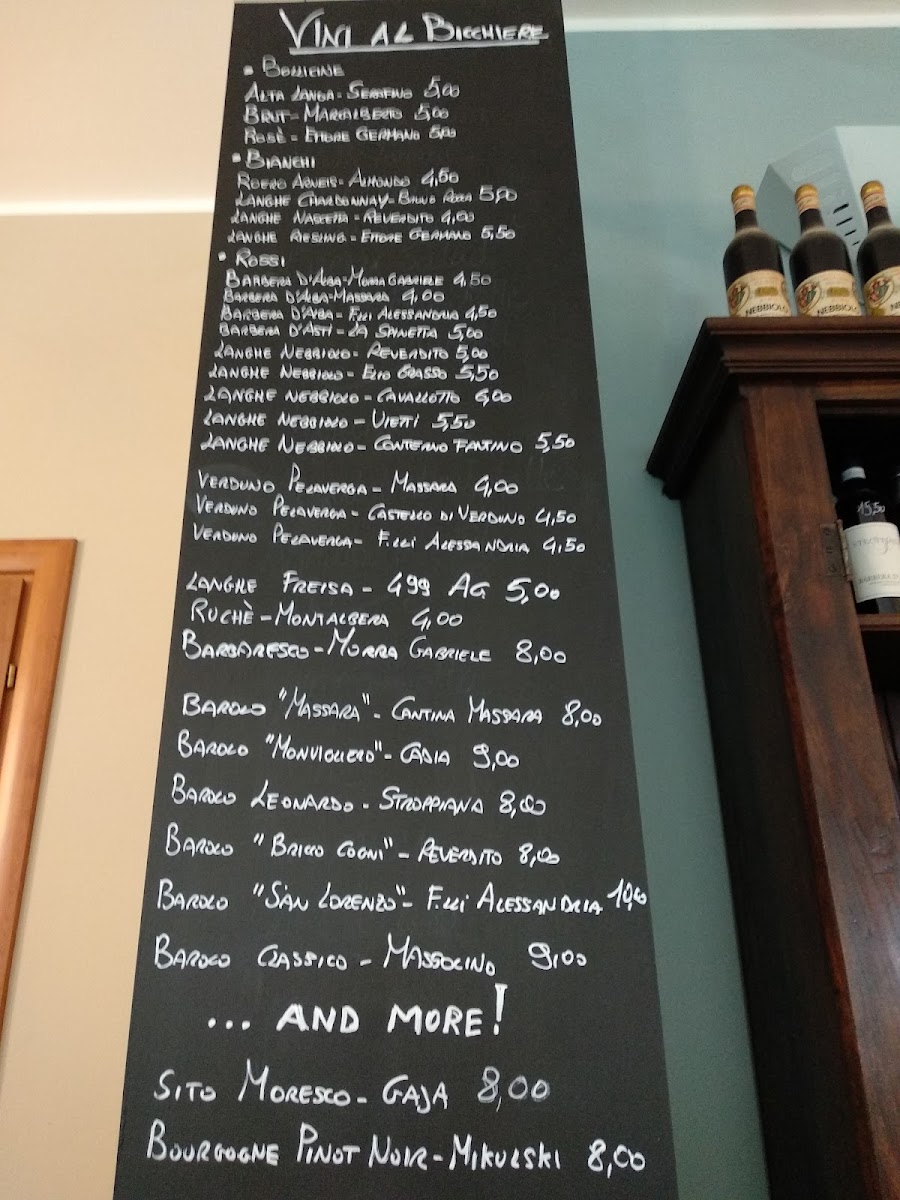 VINI AL BICCHIERE
• BOLLICINE
ALTA LANGA - SERAFINO 5,00
BRUT - MARCALBERTO 5,00
ROSÈ - ETTORE GERMANO 5,00
• BIANCHI
ROERO ARNEIS - ALMONDO 4,50
LANGHE CHARDONNAY - BRUNO ROCCA 5,00
LANGHE NASCETTA - REVERDITO 4,00
LANGHE RIESLING - ETTORE GERMANO 5,50
• ROSSI
BARBERA D'ALBA - MORRA GABRIELE 4,50
BARBERA D'ALBA - MASSARA 4,00
BARBERA D'ALBA - F.LLI ALESSANDRIA 4,50
BARBERA D'ASTI - LA SPINETTA 5,00
LANGHE NEBBIOLO - REVERDITO 5,00
LANGHE NEBBIOLO - ELIO GRASSO 5,50
LANGHE NEBBIOLO - CAVALLOTTO 6,00
LANGHE NEBBIOLO - VIETTI 5,50
LANGHE NEBBIOLO - CONTERNO FANTINO 5,50
VERDUNO PELAVERGA - MASSARA 4,00
VERDUNO PELAVERGA - CASTELLO DI VERDUNO 4,50
VERDUNO PELAVERGA - F.LLI ALESSANDRIA 4,50
LANGHE FREISA - 499 AG 5,00
RUCHÈ - MONTALBERA 4,00
BARBARESCO - MORRA GABRIELE 8,00
BAROLO "MASSARA" - CANTINA MASSARA 8,00
BAROLO "MONVIGLIERO" - CADIA 9,00
BAROLO LEONARDO - STROPPIANA 8,00
BAROLO "BRICCO COGNI" - REVERDITO 8,00
BAROLO "SAN LORENZO" - F.LLI ALESSANDRIA 10,0
BAROLO CLASSICO - MASSOLINO 9,00
... AND MORE!
SITO MORESCO - GAJA 8,00
BOURGOGNE PINOT NOIR - MIKULSKI 8,00
NEBBIOLO
NEBBIOLO
NEBBIOLO
15,50